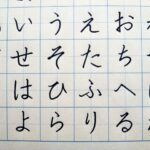 い う え お
せ そ た ち
は ひ ふ へ
よ ら り る